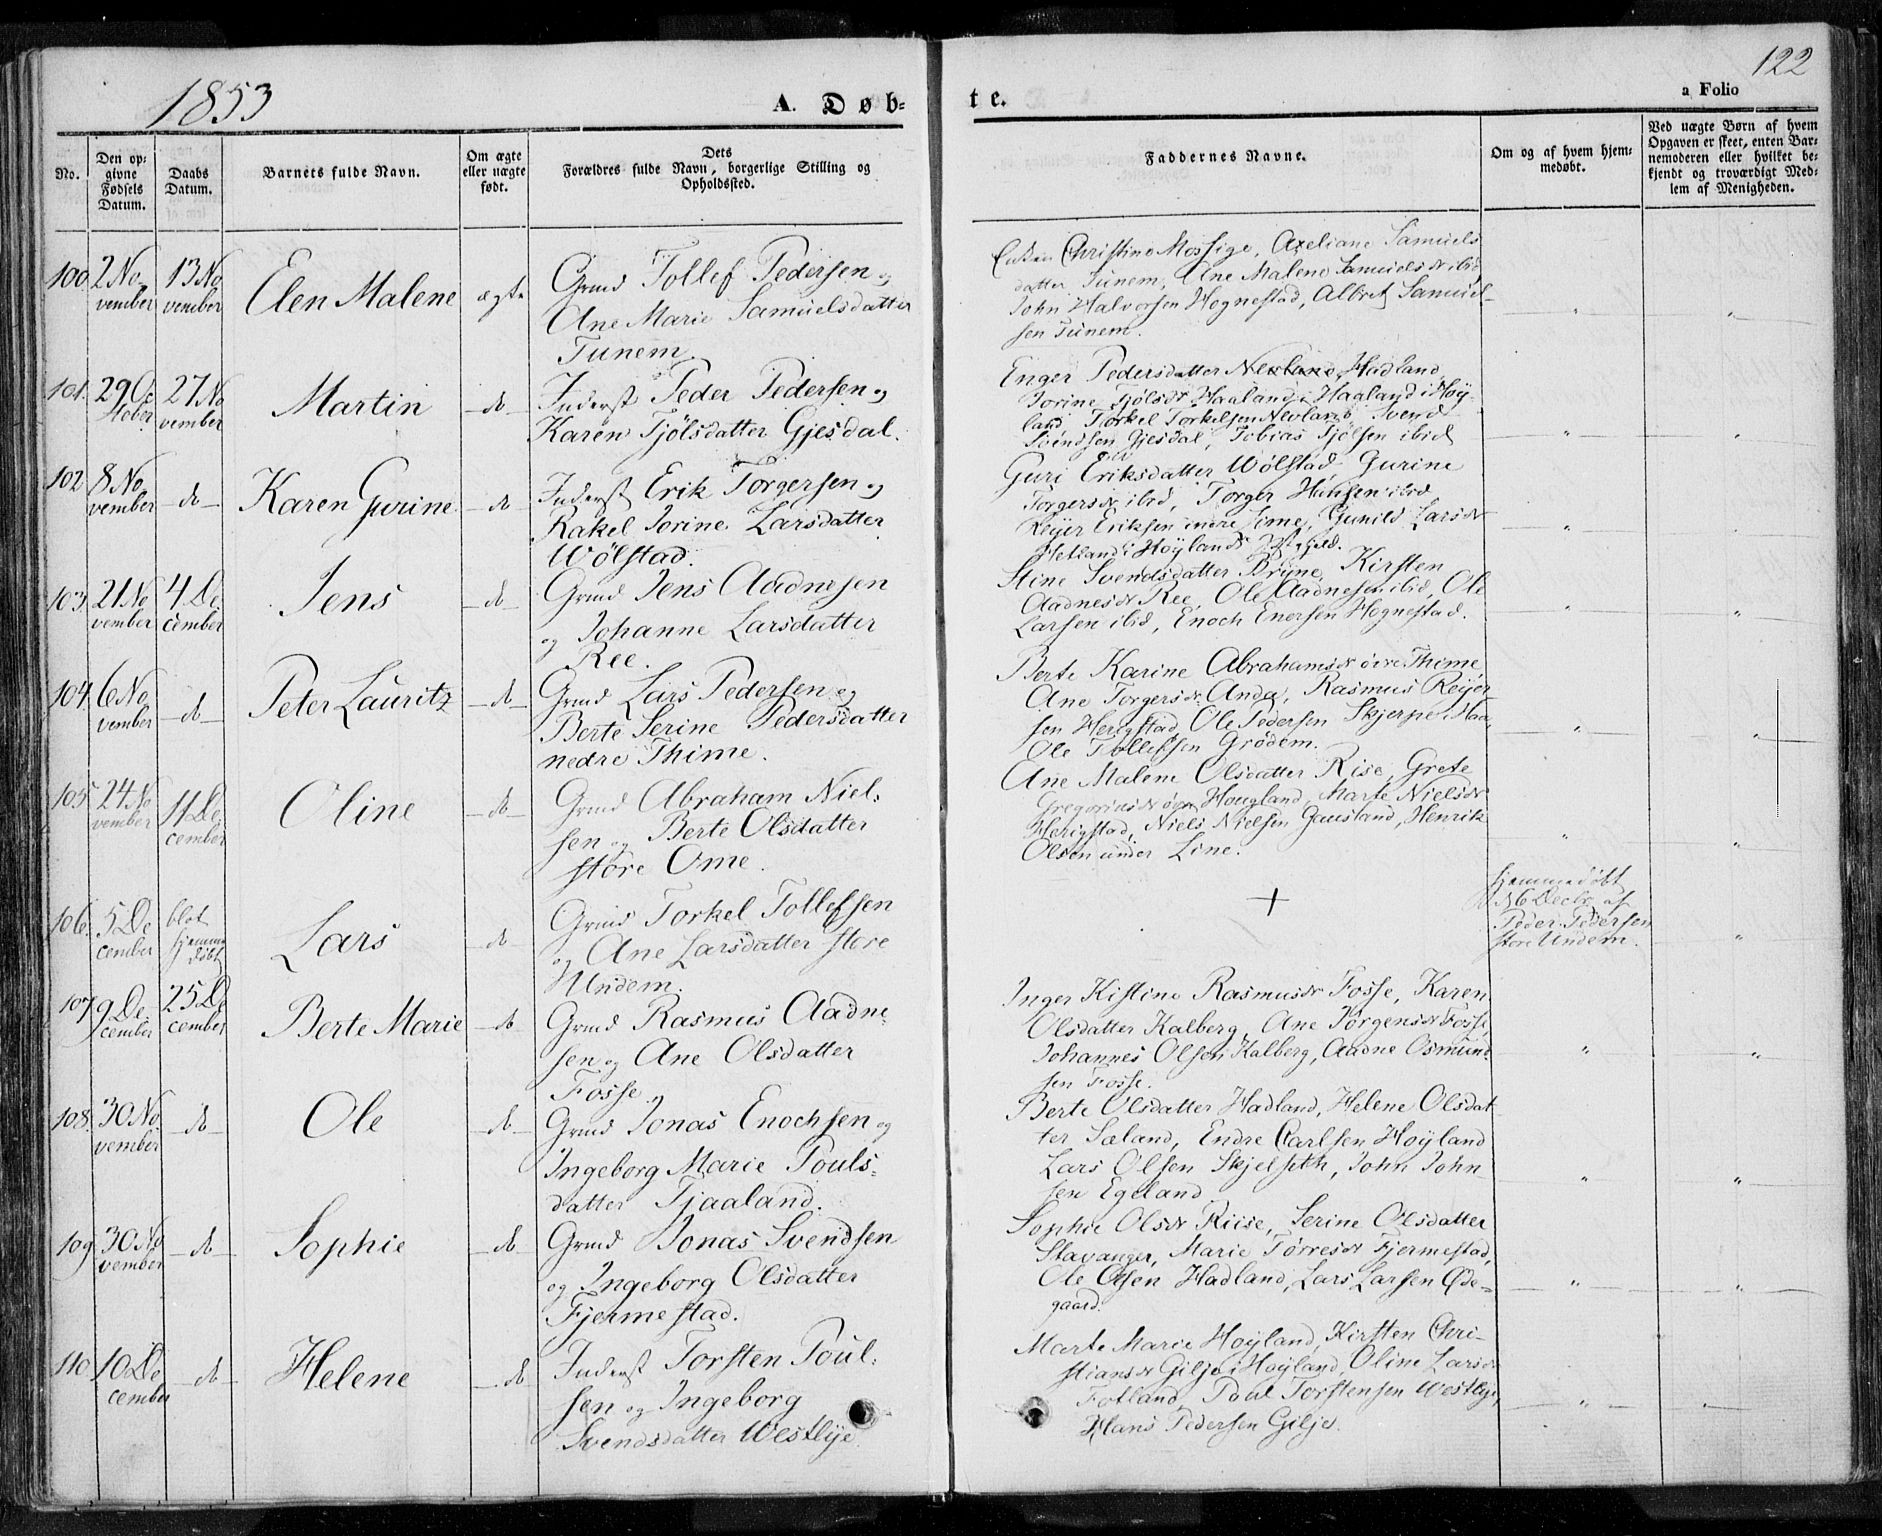 1853
A. Døb-
te.
122
a Folio
No.
Den op-
givne
Fødsels
Datum.
Daabs
Datum.
Barnets fulde Navn.
Om ægte
eller uægte
født.
Dets
Forældres fulde Navn, borgerlige Stilling og
Opholdssted.
Faddernes Navne.
Om og af hvem hjem-
medøbt.
Ved uægte Børn af hvem
Opgaven er skeet, enten Bar-
nemoderen eller hvilket be-
kjendt og troværdigt Med-
lem af Menigheden.
100.
2 No-
vember
13 No
vember
Elen Malene
ægte
Grmd Tollef Pedersen og
Ane Marie Samuelsdatter
Tunem.
Enken Christine Mossige, Axeliane Samuels
datter Tunem, Ane Malene Samuelsdr ibid
John Halvorsen Hognestad, Albret Samuel-
sen Tunem.
101.
29 Oc
tober
27 No
vember
Martin
do
Inderst Peder Pedersen og
Karen Tjølsdatter Gjesdal.
Enger Pedersdatter Nevland, Hadland
Jorine Tjølsdr Haaland i Høy-
land, Torkel Torkelsen Nevland, Svend
Svendsen Gjesdal, Tobias Tjølsen ibid
102
8 No
vember
do
Karen Gurine
do
Inderst Erik Torgersen og
Rakel Jorine Larsdatter
Wølstad.
Guri Eriksdatter Wølstad, Gurine
Torgersdr ibid, Torger Hansen ibid,
Reyer Eriksen indre Lime, Gunild Larsdr
Hetland i Høylands Pstgjeld.
103.
21 No
vember
4 De
cember
Jens
do
Grmd Jens Aadnesen
og Johanne Larsdatter
Ree.
Stine Svendsdatter Bryne, Kirsten
Aadnesdr Ree, Ole Aadnesen ibid, Ole
Larsen ibid, Enoch Enersen Hognestad.
104.
6 No
vember
do
Peter Lauritz
do
Grmd Lars Pedersen og
Berte Serine Pedersdatter
nedre Thime.
Berte Karine Abrahamsdr øvre Thime
Ane Torgersdr Anda, Rasmus Reyer-
sen Herigstad, Ole Pedersen Skjerpe i Haa,
Ole Tollefsen Grødem.
105
24 No
vember
11 De
cember
Oline
do
Grmd Abraham Niel-
sen og Berte Olsdatter
store Ome.
Ane Malene Olsdatter Rise, Grete
Gregoriusdr øvre Hougland, Marte Nielsdr
Herigstad, Niels Nielsen Gausland, Henrik
Olsen under Line.
106.
5 De
cember
blot
hjemme
døbt
Lars
do
Grmd Torkel Tollefsen
og Ane Larsdatter store
Undem.
+
hjemmedøbt
d 6 Decbr af
Peder Pedersen
store Undem.
107
9 De
cember
25 De
cember
Berte Marie
do
Grmd Rasmus Aadne-
sen og Ane Olsdatter
Fosse.
Inger Kistine Rasmusdr Fosse, Karen
Olsdatter Kalberg, Ane Jørgensdr Fosse
Johannes Olsen Kalberg, Aadne Osmund-
sen Fosse.
108.
30 No
vember
do
Ole
do
Grmd Jonas Enochsen og
Ingeborg Marie Pouls-
datter Tjaaland.
Berte Olsdatter Hadland, Helene Olsdat-
ter Sæland, Endre Carlsen Høyland
Lars Olsen Skjelseth, John John-
sen Egeland
109
30 No
vember
do
Sophie
do
Grmd Jonas Svendsen
og Ingeborg Olsdatter
Fjermestad.
Sophie Olsdr Riise, Serine Olsdatter
Stavanger, Marie Tørresdr Fjermestad,
Ole Olsen Hadland, Lars Larsen Øde-
gaard.
110.
10 De
cember
do
Helene
do
Inderst Torsten Poul-
sen og Ingeborg
Svendsdatter Westlye
Marte Marie Høyland, Kirsten Chri-
stiansdr Gilje i Høyland, Oline Larsdr
Fotland, Poul Torstensen Westlye,
Hans Pedersen Gilje.